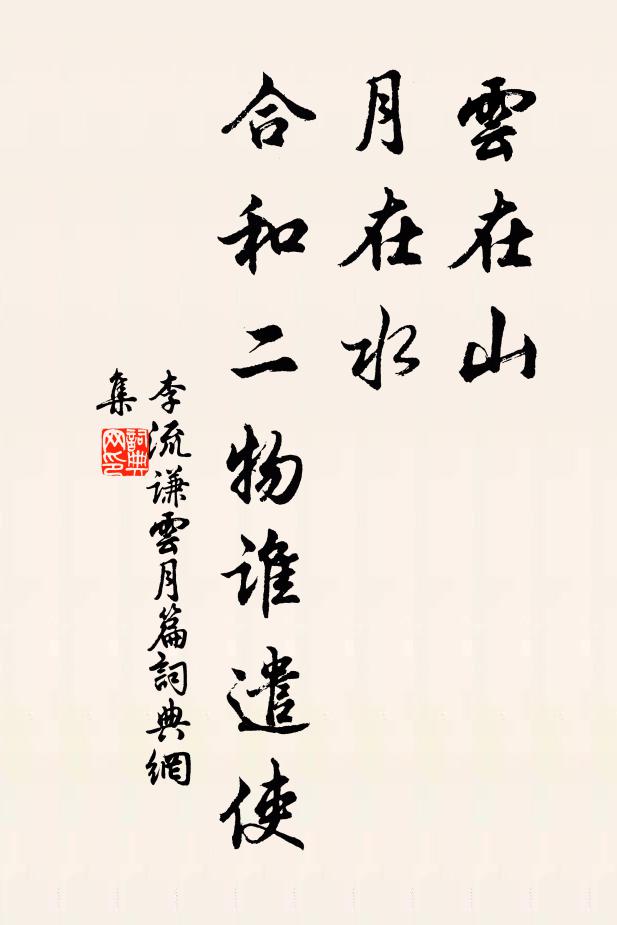 雲在山
月在水
合和二物谁遣使
李流谦雲月篇詞典網
集
詞典
网印